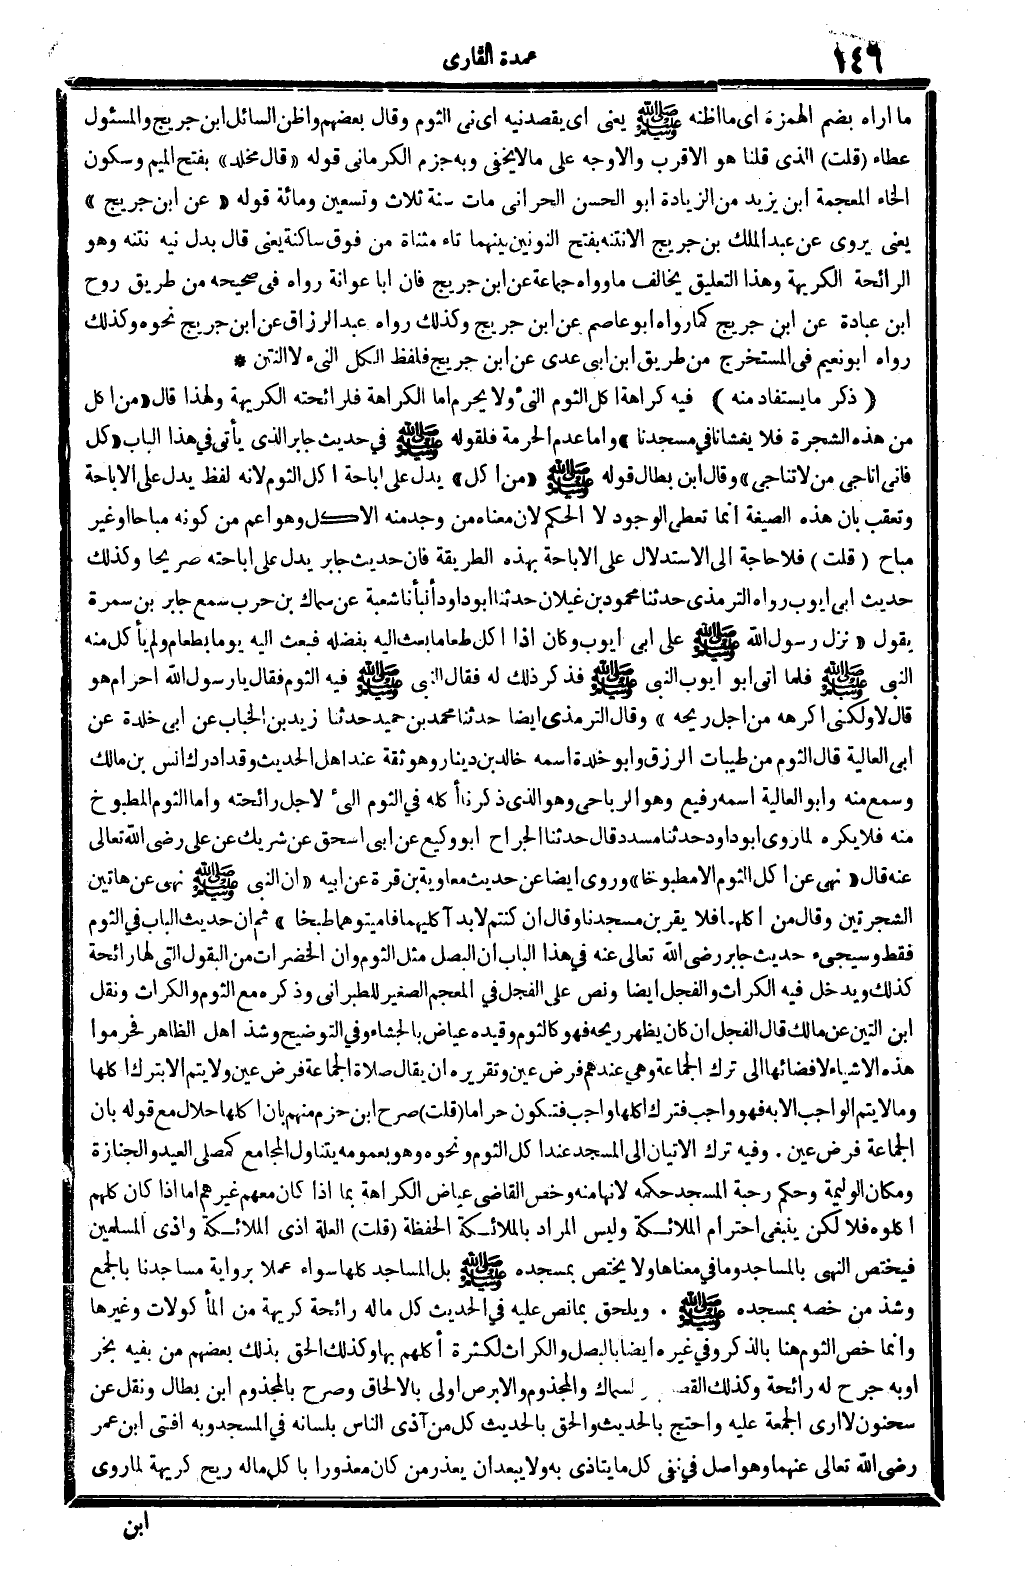 ١٤٦
عمدة القارى
ما اراه بضم الهمزة اى ما اظنه ﷺ يعنى اى يقصد نيه اى نى الثوم وقال بعضهم واظن السائل ابن جريج والمسئول
عطاء (قلت) الذى قلنا هو الاقرب والاوجه على مالايخفى وبه جزم الكرمانى قوله «قال مخلد» بفتح الميم وسكون
الخاء المعجمة ابن يزيد من الزيادة ابو الحسن الحرانى مات سنة ثلاث وتسعين ومائة قوله «عن ابن جريج»
يعنى يروى عن عبد الملك بن جريج الانتنه بفتح النونين بينهما تاء مثناة من فوق ساكنة يعنى قال بدل نيه نتنه وهو
الرائحة الكريهة وهذا التعليق يخالف ماوواه جماعة عن ابن جريج فان ابا عوانة رواه فى صحيحه من طريق روح
ابن عبادة عن ابن جريج كمارواه ابو عاصم عن ابن جريج وكذلك رواه عبد الرزاق عن ابن جريج نحوه وكذلك
رواه ابونعيم فى المستخرج من طريق ابن ابى عدى عن ابن جريج فلفظ الكل النىء لا النتن *
(ذكر ما يستفاد منه) فيه كراهة اكل الثوم النىء ولا يحرم اما الكراهة فلرائحته الكريهة ولهذا قال «من اكل
من هذه الشجرة فلا يغشانا فى مسجدنا» واما عدم الحرمة فلقوله ﷺ فى حديث جابر الذى يأتى فى هذا الباب «كل
فانى اناجى من لا تناجى» وقال ابن بطال قوله ﷺ «من اكل» يدل على اباحة اكل الثوم لانه لفظ يدل على الاباحة
وتعقب بان هذه الصيغة انما تعطى الوجود لا الحكم لان معناه من وجد منه الاكل وهو اعم من كونه مباحا او غير
مباح (قلت) فلا حاجة الى الاستدلال على الاباحة بهذه الطريقة فان حديث جابر يدل على اباحته صريحا وكذلك
حديث ابى ايوب رواه الترمذى حدثنا محمود بن غيلان حدثنا ابوداود أنبأنا شعبة عن سماك بن حرب سمع جابر بن سمرة
يقول «نزل رسول الله ﷺ على ابى ايوب وكان اذا اكل طعاما بعث اليه بفضله فبعث اليه يوما بطعام ولم يأكل منه
النبى ﷺ فلما اتى ابو ايوب النبى ﷺ فذكر ذلك له فقال النبى ﷺ فيه الثوم فقال يارسول الله احرام هو
قال لا ولكنى اكرهه من اجل ريحه» وقال الترمذى ايضا حدثنا محمد بن حميد حدثنا زيد بن الحباب عن ابى خلدة عن
ابى العالية قال الثوم من طيبات الرزق وابو خلدة اسمه خالد بن دينار وهو ثقة عند اهل الحديث وقد ادرك انس بن مالك
وسمع منه وابو العالية اسمه رفيع وهو الرياحى وهو الذى ذكرنا أكله فى الثوم النىء لاجل رائحته واما الثوم المطبوخ
منه فلا يكره لماروى ابو داود حدثنا مسدد قال حدثنا الجراح ابو وكيع عن ابى اسحق عن شريك عن على رضى الله تعالى
عنه قال «نهى عن اكل الثوم الا مطبوخا» وروى ايضا عن حديث معاوية بن قرة عن ابيه «ان النبى ﷺ نهى عن هاتين
الشجرتين وقال من اكلهما فلا يقربن مسجدنا وقال ان كنتم لابد آكليهما فاميتوهما طبخا» ثم ان حديث الباب فى الثوم
فقط وسيجىء حديث جابر رضى الله تعالى عنه فى هذا الباب ان البصل مثل الثوم وان الخضرات من البقول التى لها رائحة
كذلك ويدخل فيه الكراث والفجل ايضا ونص على الفجل فى المعجم الصغير للطبرانى وذكره مع الثوم والكراث ونقل
ابن التين عن مالك قال الفجل ان كان يظهر ريحه فهو كالثوم وقيده عياض بالجشاء وفى التوضيح وشذ اهل الظاهر فحرموا
هذه الاشياء لافضائها الى ترك الجماعة وهى عندهم فرض عين وتقريره ان يقال صلاة الجماعة فرض عين ولا يتم الا بترك اكلها
ومالا يتم الواجب الا به فهو واجب فترك اكلها واجب فتكون حراما (قلت) صرح ابن حزم منهم بان اكلها حلال مع قوله بان
الجماعة فرض عين . وفيه ترك الاتيان الى المسجد عند اكل الثوم ونحوه وهو بعمومه يتناول المجامع كمصلى العيد والجنازة
ومكان الوليمة وحكم رحبة المسجد حكمه لانها منه وخص القاضى عياض الكراهة بما اذا كان معهم غيرهم اما اذا كان كلهم
اكلوه فلا لكن ينبغى احترام الملائكة وليس المراد بالملائكة الحفظة (قلت) العلة اذى الملائكة واذى المسلمين
فيختص النهى بالمساجد وما فى معناها ولا يختص بمسجده ﷺ بل المساجد كلها سواء عملا برواية مساجدنا بالجمع
وشذ من خصه بمسجده ﷺ . ويلحق بما نص عليه فى الحديث كل ماله رائحة كريهة من المأكولات وغيرها
وانما خص الثوم هنا بالذكر وفى غيره ايضا بالبصل والكراث لكثرة أكلهم بها وكذلك الحق بذلك بعضهم من بفيه بخر
اوبه جرح له رائحة وكذلك القصـ لسماك والمجذوم والابرص اولى بالالحاق وصرح بالمجذوم ابن بطال ونقل عن
سحنون لا ارى الجمعة عليه واحتج بالحديث والحق بالحديث كل من آذى الناس بلسانه فى المسجد وبه افتى ابن عمر
رضى الله تعالى عنهما وهو اصل فى نفى كل ما يتاذى به ولا يبعد ان يعذر من كان معذورا با كل ماله ريح كريهة لماروى
ابن